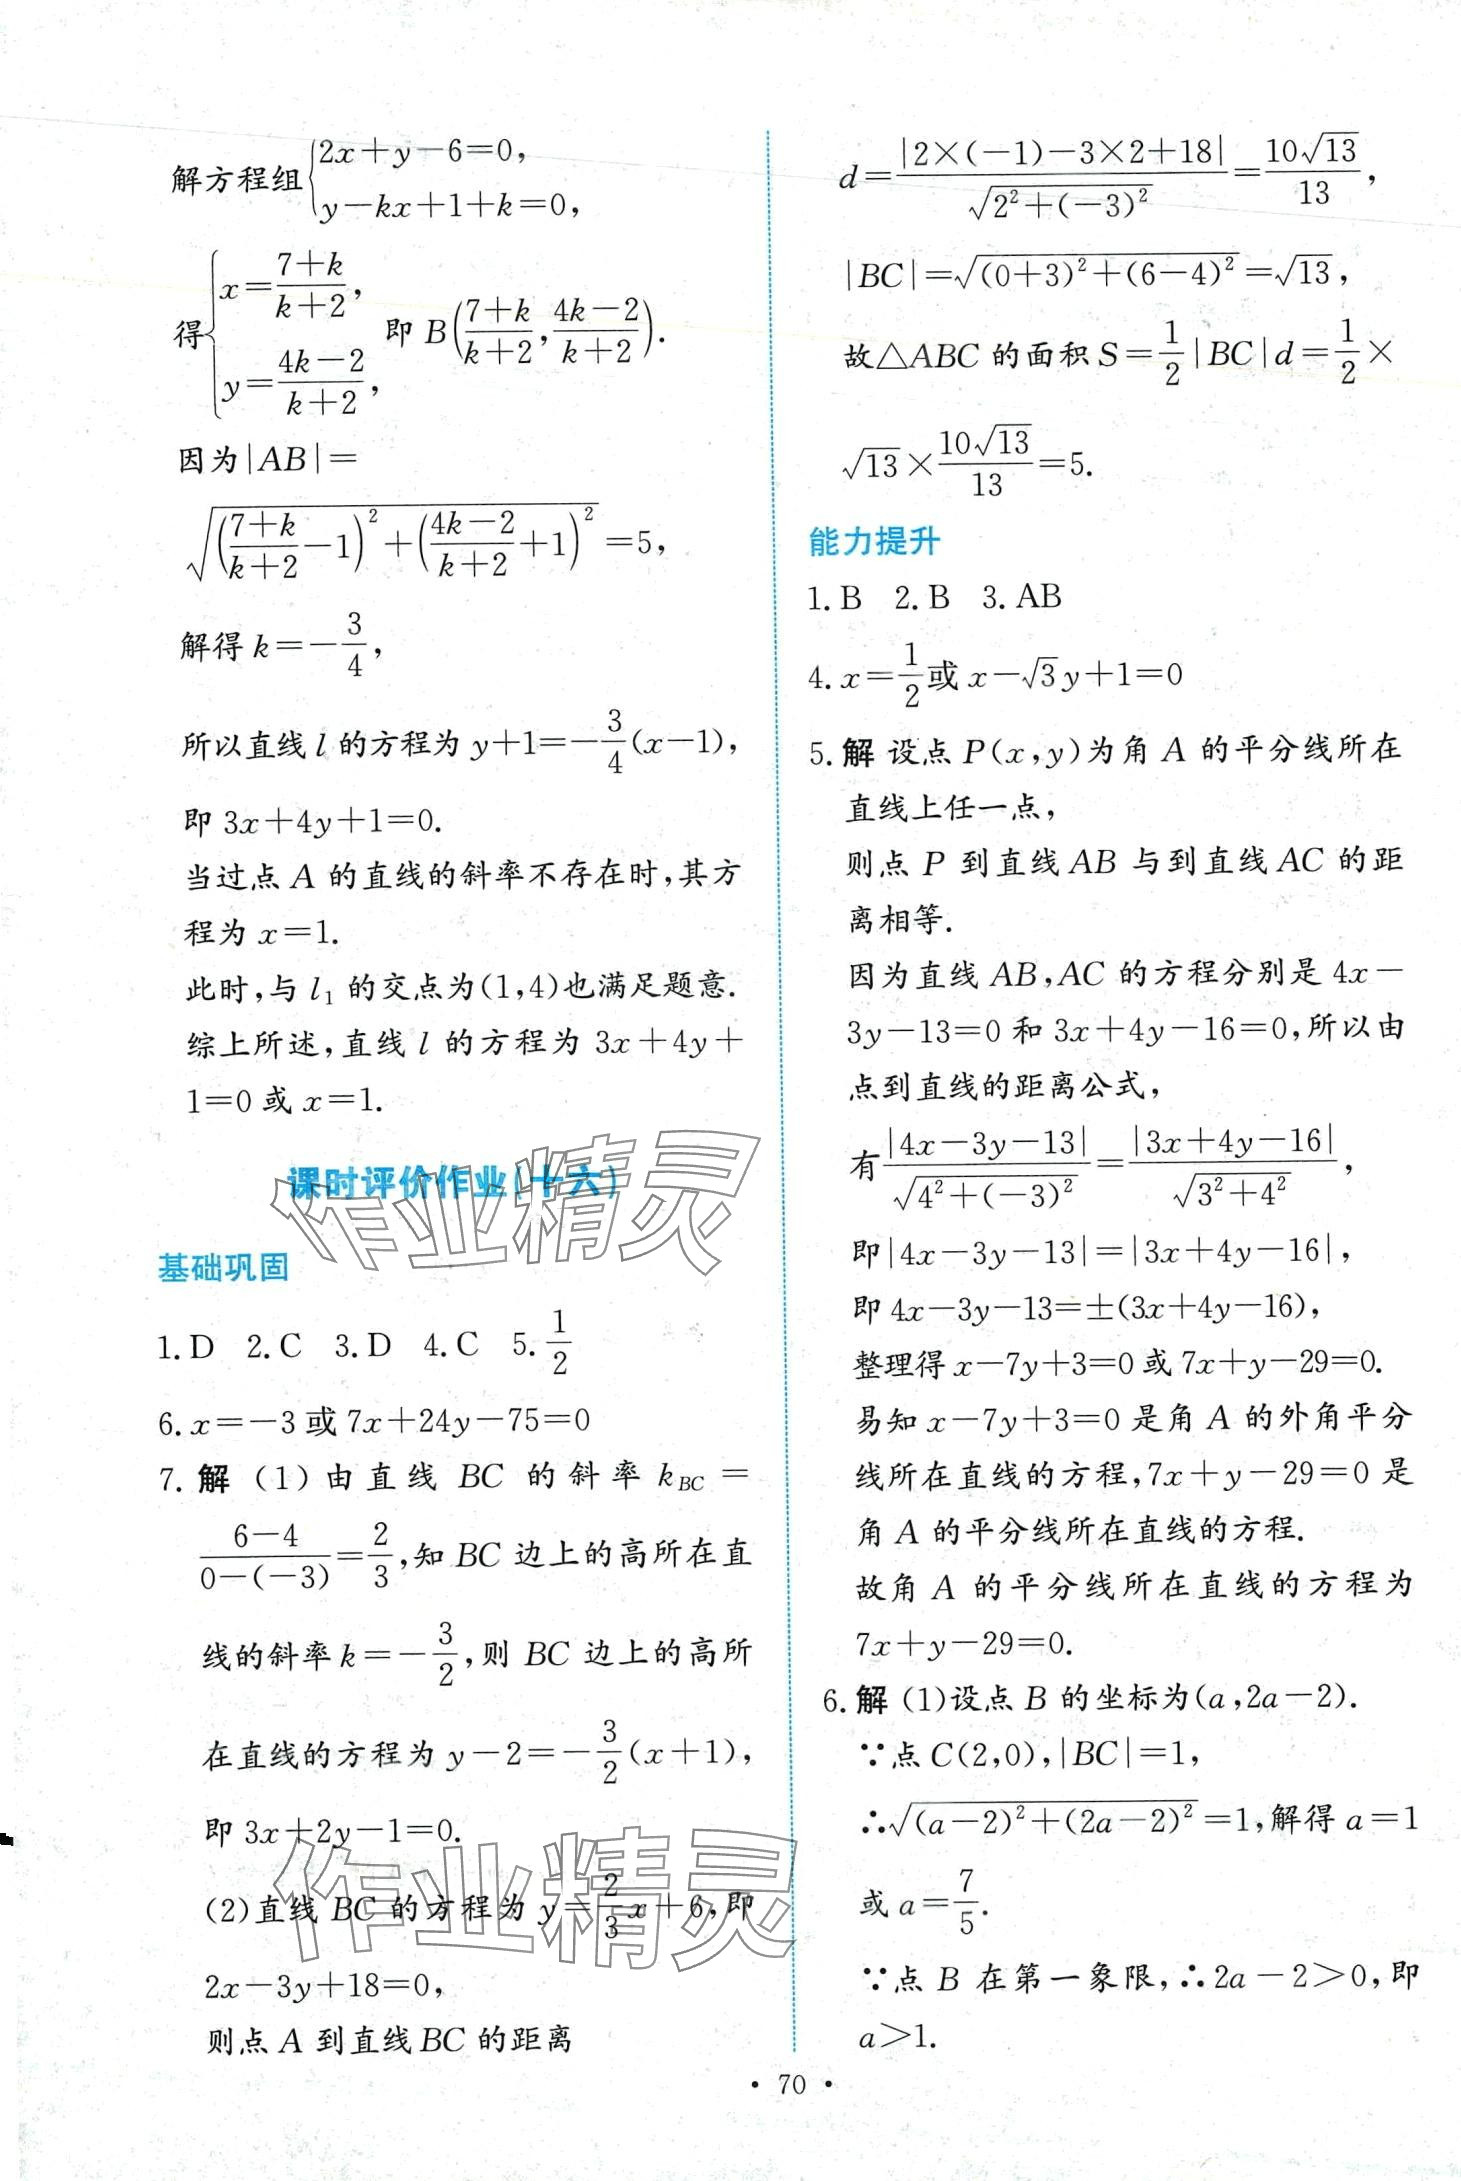 解方程组{2x+y-6=0,
y-kx+1+k=0,
得{x=\frac{7+k}{k+2},
y=\frac{4k-2}{k+2}, 即 B(\frac{7+k}{k+2},\frac{4k-2}{k+2}).
因为|AB|=
\sqrt{(\frac{7+k}{k+2}-1)^2+(\frac{4k-2}{k+2}+1)^2}=5,
解得 k=-\frac{3}{4},
所以直线 l 的方程为 y+1=-\frac{3}{4}(x-1),
即 3x+4y+1=0.
当过点 A 的直线的斜率不存在时,其方
程为 x=1.
此时,与 l₁ 的交点为(1,4)也满足题意.
综上所述,直线 l 的方程为 3x+4y+
1=0 或 x=1.
课时评价作业(十六)
作业精灵
基础巩固
1.D 2.C 3.D 4.C 5.\frac{1}{2}
6.x=-3 或 7x+24y-75=0
7.解 (1)由直线 BC 的斜率 k_{BC}=
\frac{6-4}{0-(-3)}=\frac{2}{3},知 BC 边上的高所在直
线的斜率 k=-\frac{3}{2},则 BC 边上的高所
在直线的方程为 y-2=-\frac{3}{2}(x+1),
即 3x+2y-1=0.
作业精灵
(2)直线 BC 的方程为 y=\frac{2}{3}x+6,即
2x-3y+18=0,
则点 A 到直线 BC 的距离
d=\frac{|2×(-1)-3×2+18|}{\sqrt{2^2+(-3)^2}}=\frac{10\sqrt{13}}{13},
|BC|=\sqrt{(0+3)^2+(6-4)^2}=\sqrt{13},
故△ABC 的面积 S=\frac{1}{2}|BC|d=\frac{1}{2}×
\sqrt{13}×\frac{10\sqrt{13}}{13}=5.
能力提升
1.B 2.B 3.AB
4.x=\frac{1}{2}或 x-\sqrt{3}y+1=0
5.解 设点 P(x,y)为角 A 的平分线所在
直线上任一点,
则点 P 到直线 AB 与到直线 AC 的距
离相等.
因为直线 AB,AC 的方程分别是 4x-
3y-13=0 和 3x+4y-16=0,所以由
点到直线的距离公式,
有\frac{|4x-3y-13|}{\sqrt{4^2+(-3)^2}}=\frac{|3x+4y-16|}{\sqrt{3^2+4^2}},
即|4x-3y-13|=|3x+4y-16|,
即 4x-3y-13=±(3x+4y-16),
整理得 x-7y+3=0 或 7x+y-29=0.
易知 x-7y+3=0 是角 A 的外角平分
线所在直线的方程,7x+y-29=0 是
角 A 的平分线所在直线的方程.
故角 A 的平分线所在直线的方程为
7x+y-29=0.
6.解 (1)设点 B 的坐标为(a,2a-2).
∵点 C(2,0),|BC|=1,
∴\sqrt{(a-2)^2+(2a-2)^2}=1,解得 a=1
或 a=\frac{7}{5}.
∵点 B 在第一象限,∴2a-2>0,即
a>1.
• 70 •